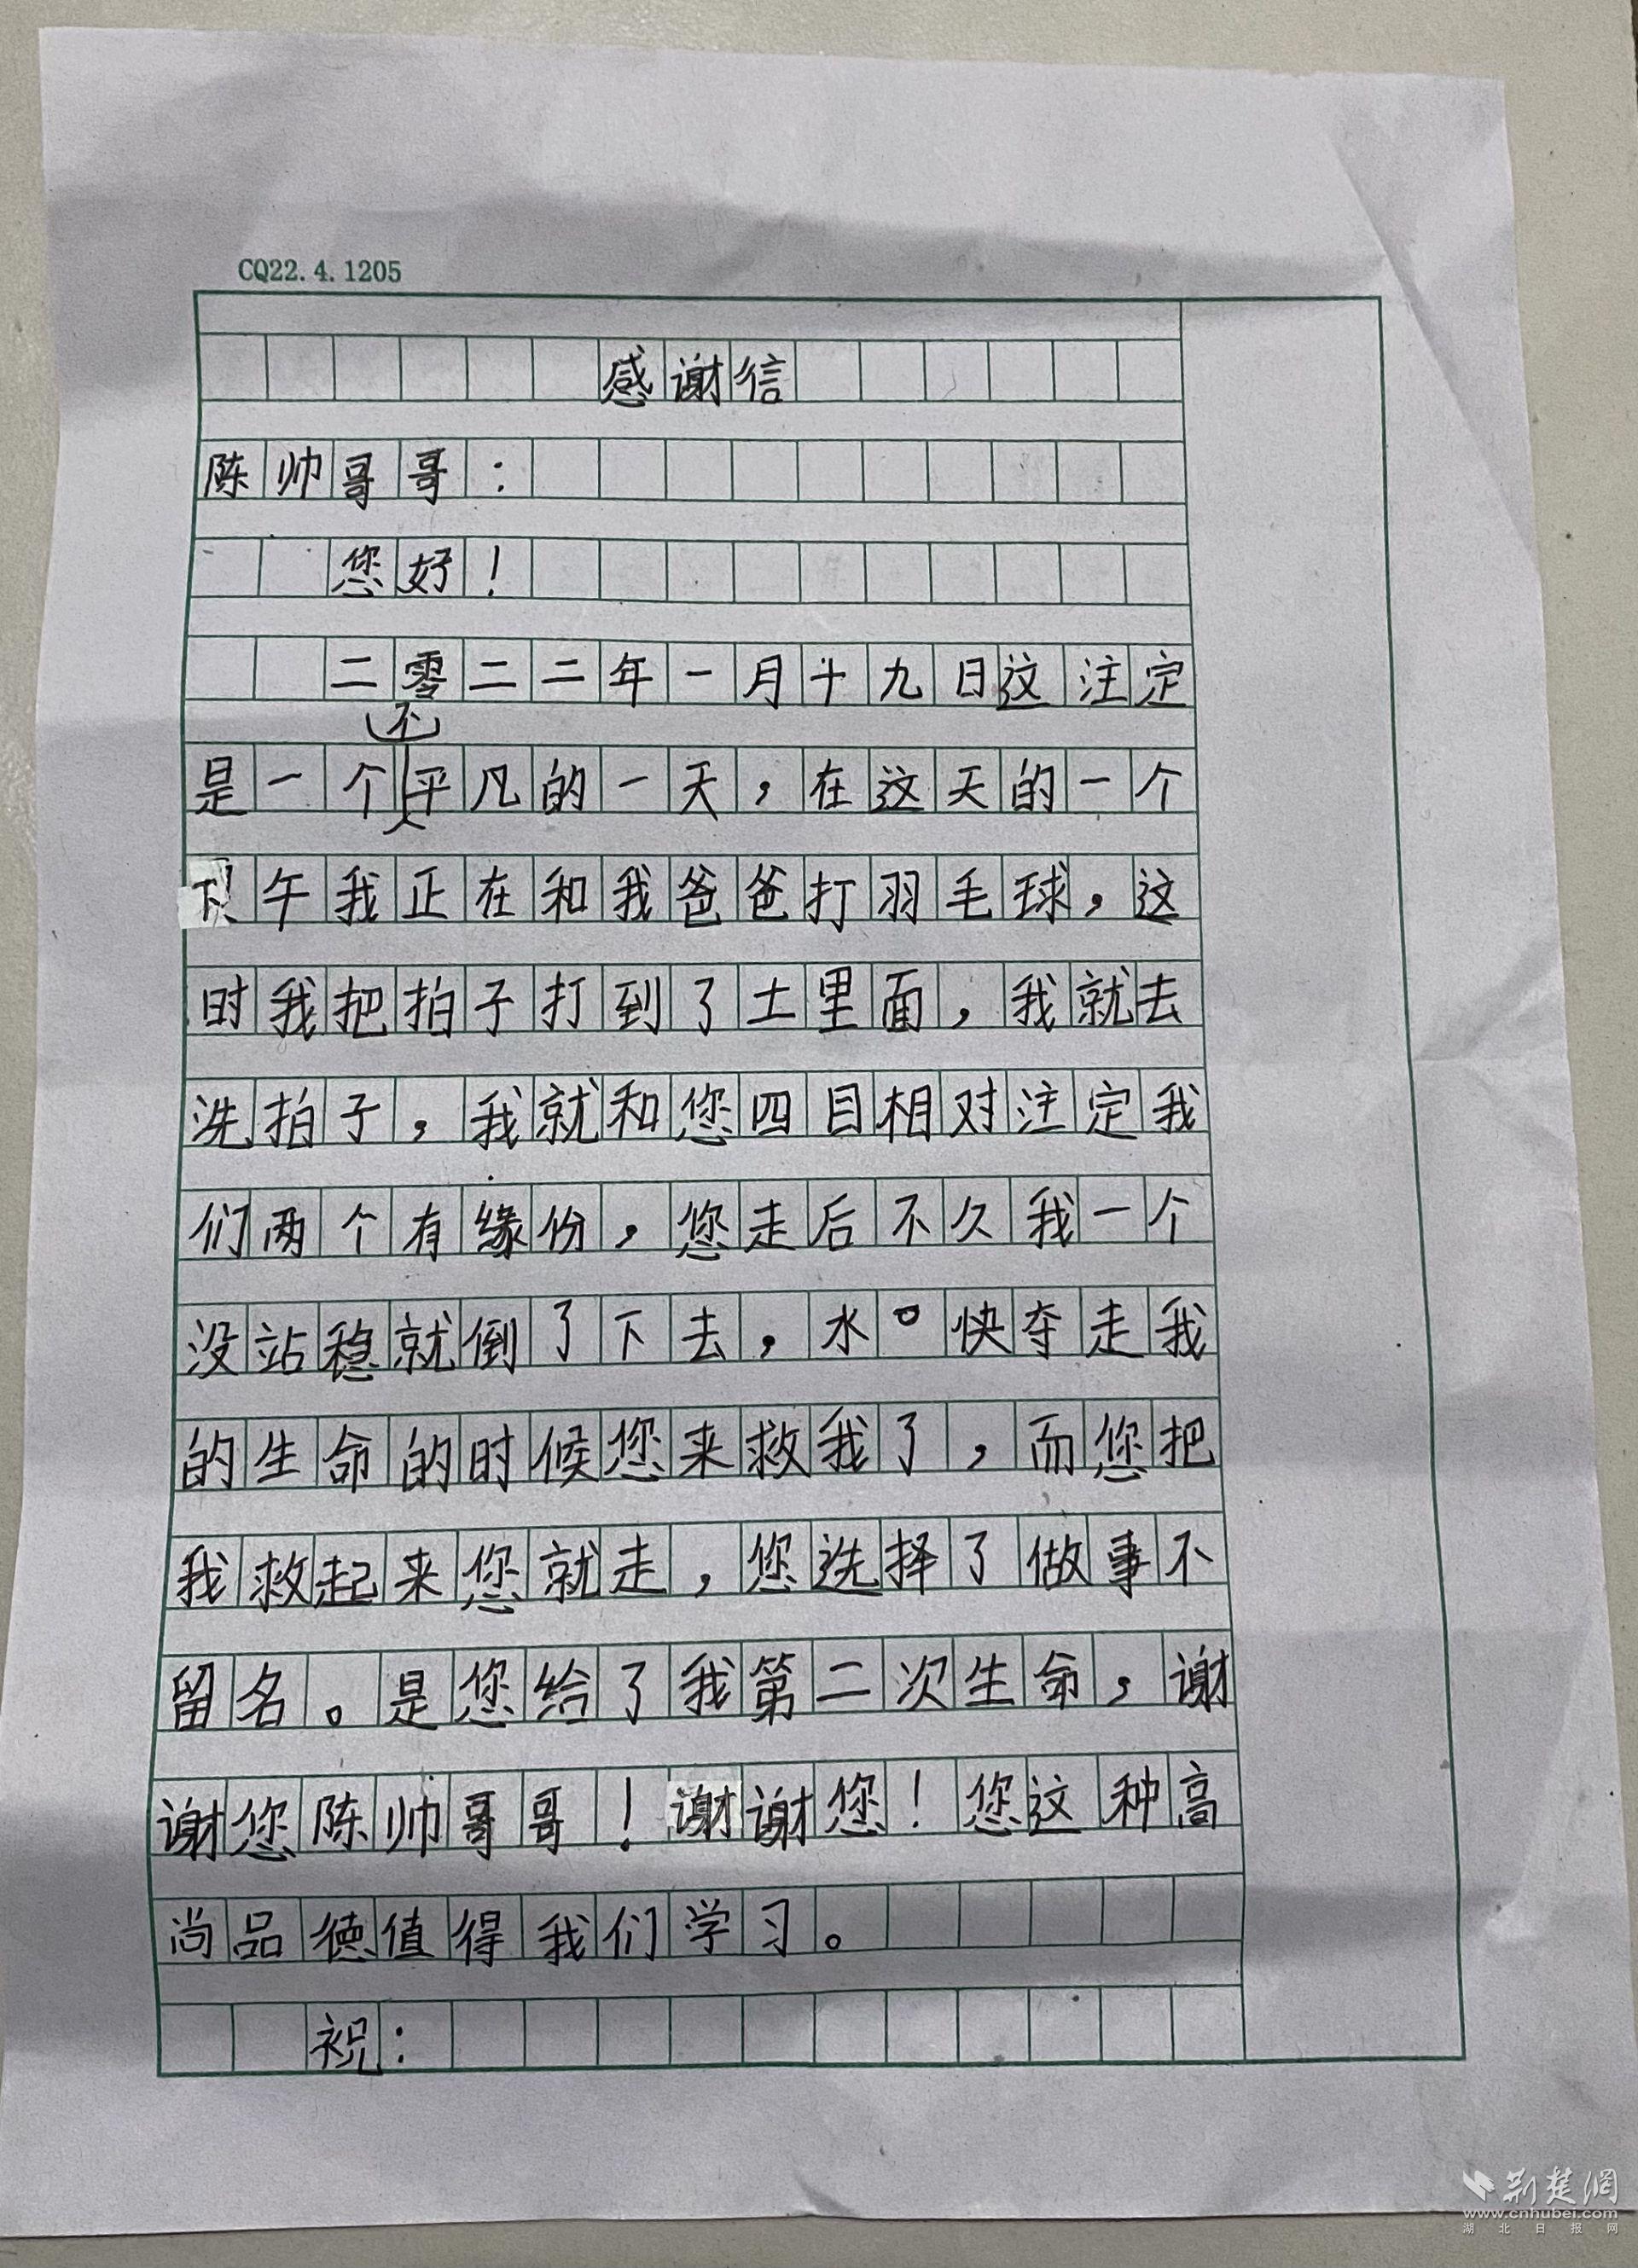 CQ22.4.1205
感谢信
陈帅哥哥：
您好！
二零二二年一月十九日这注定
不
是一个平凡的一天，在这天的一个
下午我正在和我爸爸打羽毛球，这
时我把拍子打到了土里面，我就去
洗拍子，我就和您四目相对注定我
们两个有缘份，您走后不久我一个
没站稳就倒了下去，水快夺走我
的生命的时候您来救我了，而您把
我救起来您就走，您选择了做事不
留名。是您给了我第二次生命，谢
谢您陈帅哥哥！谢谢您！您这种高
尚品德值得我们学习。
祝：
荆楚網
www.cnhubei.com
湖北日报网